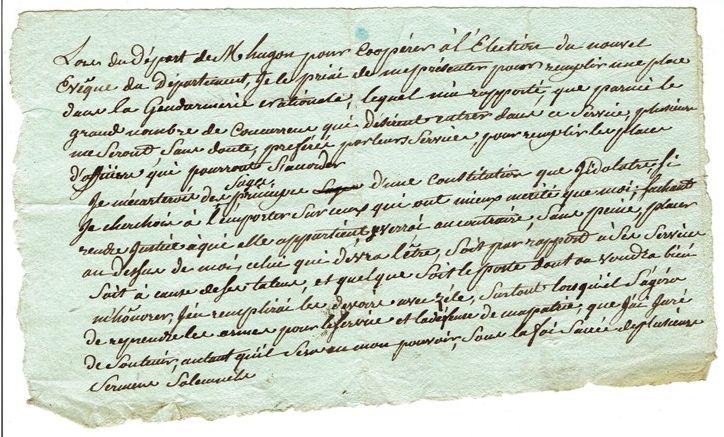 Lors du Départ de M hugon pour Coopérer à l'Election du nouvel
Evêque du Département, Je le priai de me présenter pour remplir une place
dans la Gendarmerie nationale, lequel m'a rapporté, que parmi le
grand nombre de Concurrens qui désirent entrer dans ce Service, plusieurs
me Seront Sans doute, préférés par leurs Service, pour remplir les places
d'officiers qui pourront
Je m'écarterois des Sages principes d'une Constitution que J'idolatre, Si
Je cherchois à l'emporter Sur ceux qui ont mieux mérité que moi; Sachant
rendre Justice à qui elle appartient Je verrai au contraire, Sans peine, placer
au dessus de moi, celui qui devra l'être, Soit par rapport à Ses Service
Soit à cause de Ses talens, et quelque Soit le poste dont on voudra bien
m'honorer, J'en remplirai les devoirs avec zéle, Surtout lorsqu'il S'agira
de reprendre les armes pour le Service et la défense de ma patrie, que J'ai Juré
de Soutenir, autant qu'il Sera en mon pouvoir, Sous la foi Sacrée de plusieurs
Sermens Solemnels